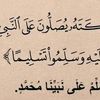 ـكَتَهُ يُصَلُّونَ عَلَى النَّبِيِّ
ـلَيْهِ وَسَلِّمُوا تَسْلِيمًا﴾
ـلِّمْ عَلَى نَبِيِّنَا مُحَمَّدٍ.